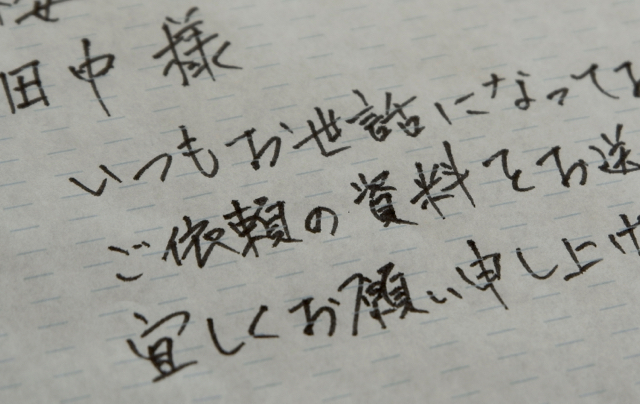 田中 様
いつもお世話になって
ご依頼の資料をお送
宜しくお願い申し上げ